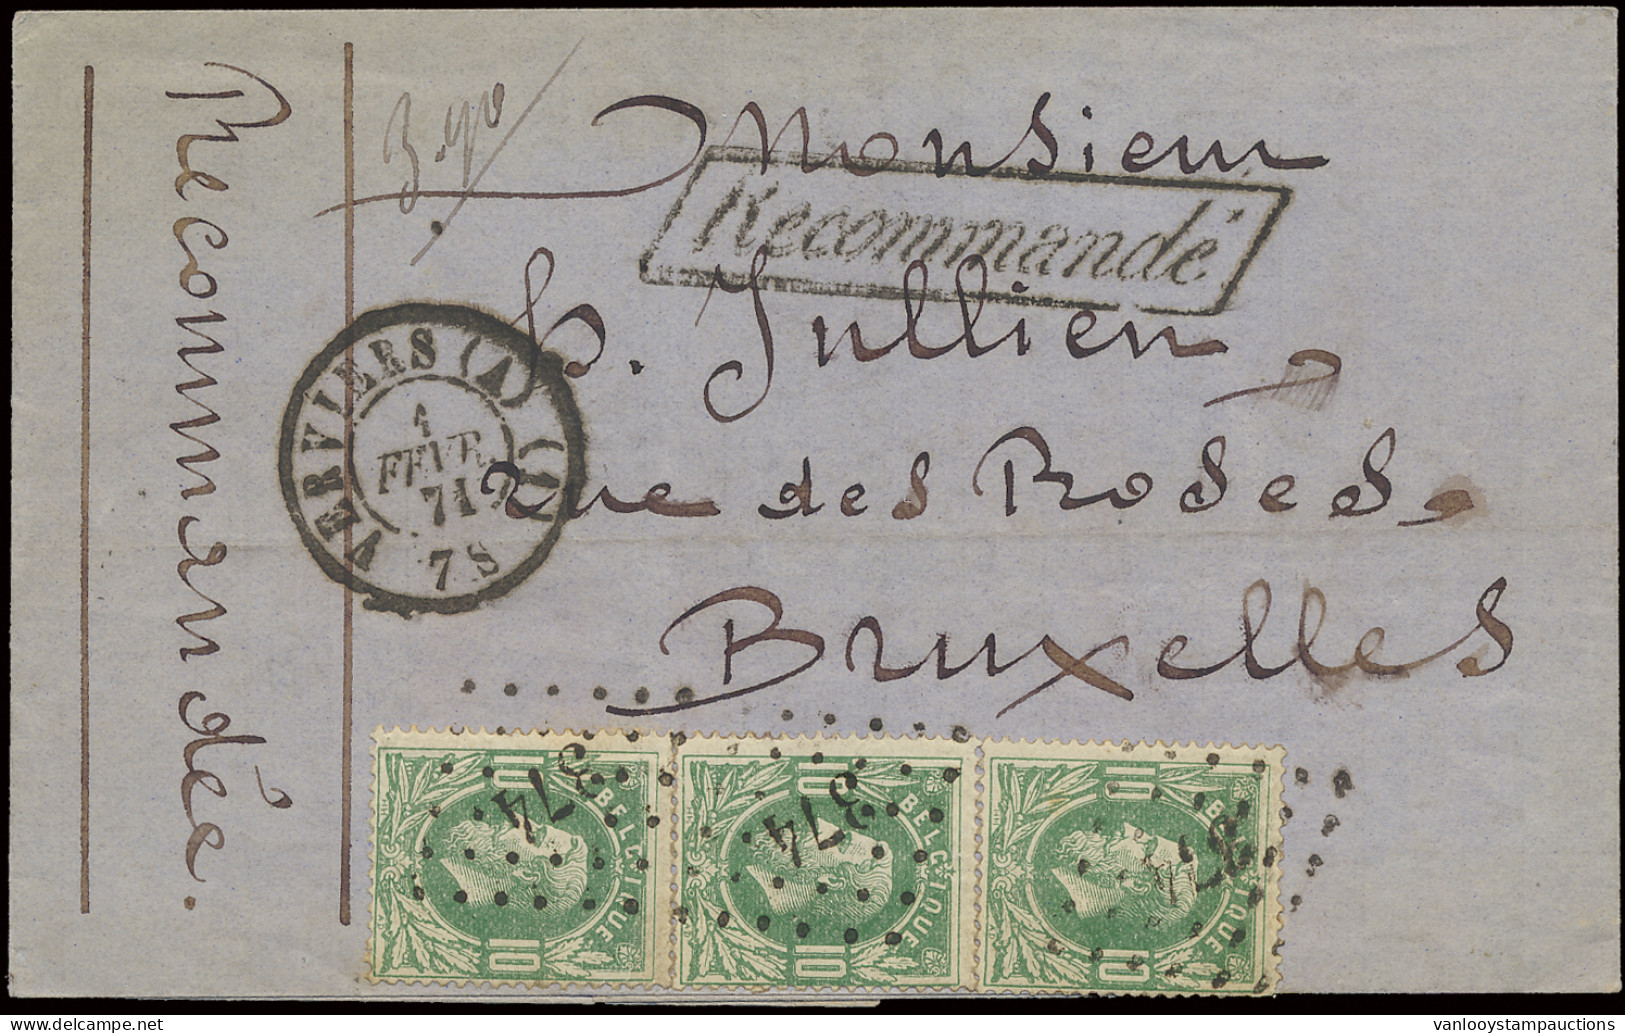 Recommandée.
3.90
Monsieur
Recommandé
H. Jullien
rue des Roses.
Bruxelles
VERVIERS (A)
FEVR
71
7 S
10 BELGIQUE 10
374
10 BELGIQUE 10
374
10 BELGIQUE 10
374
vanlooystampauctions